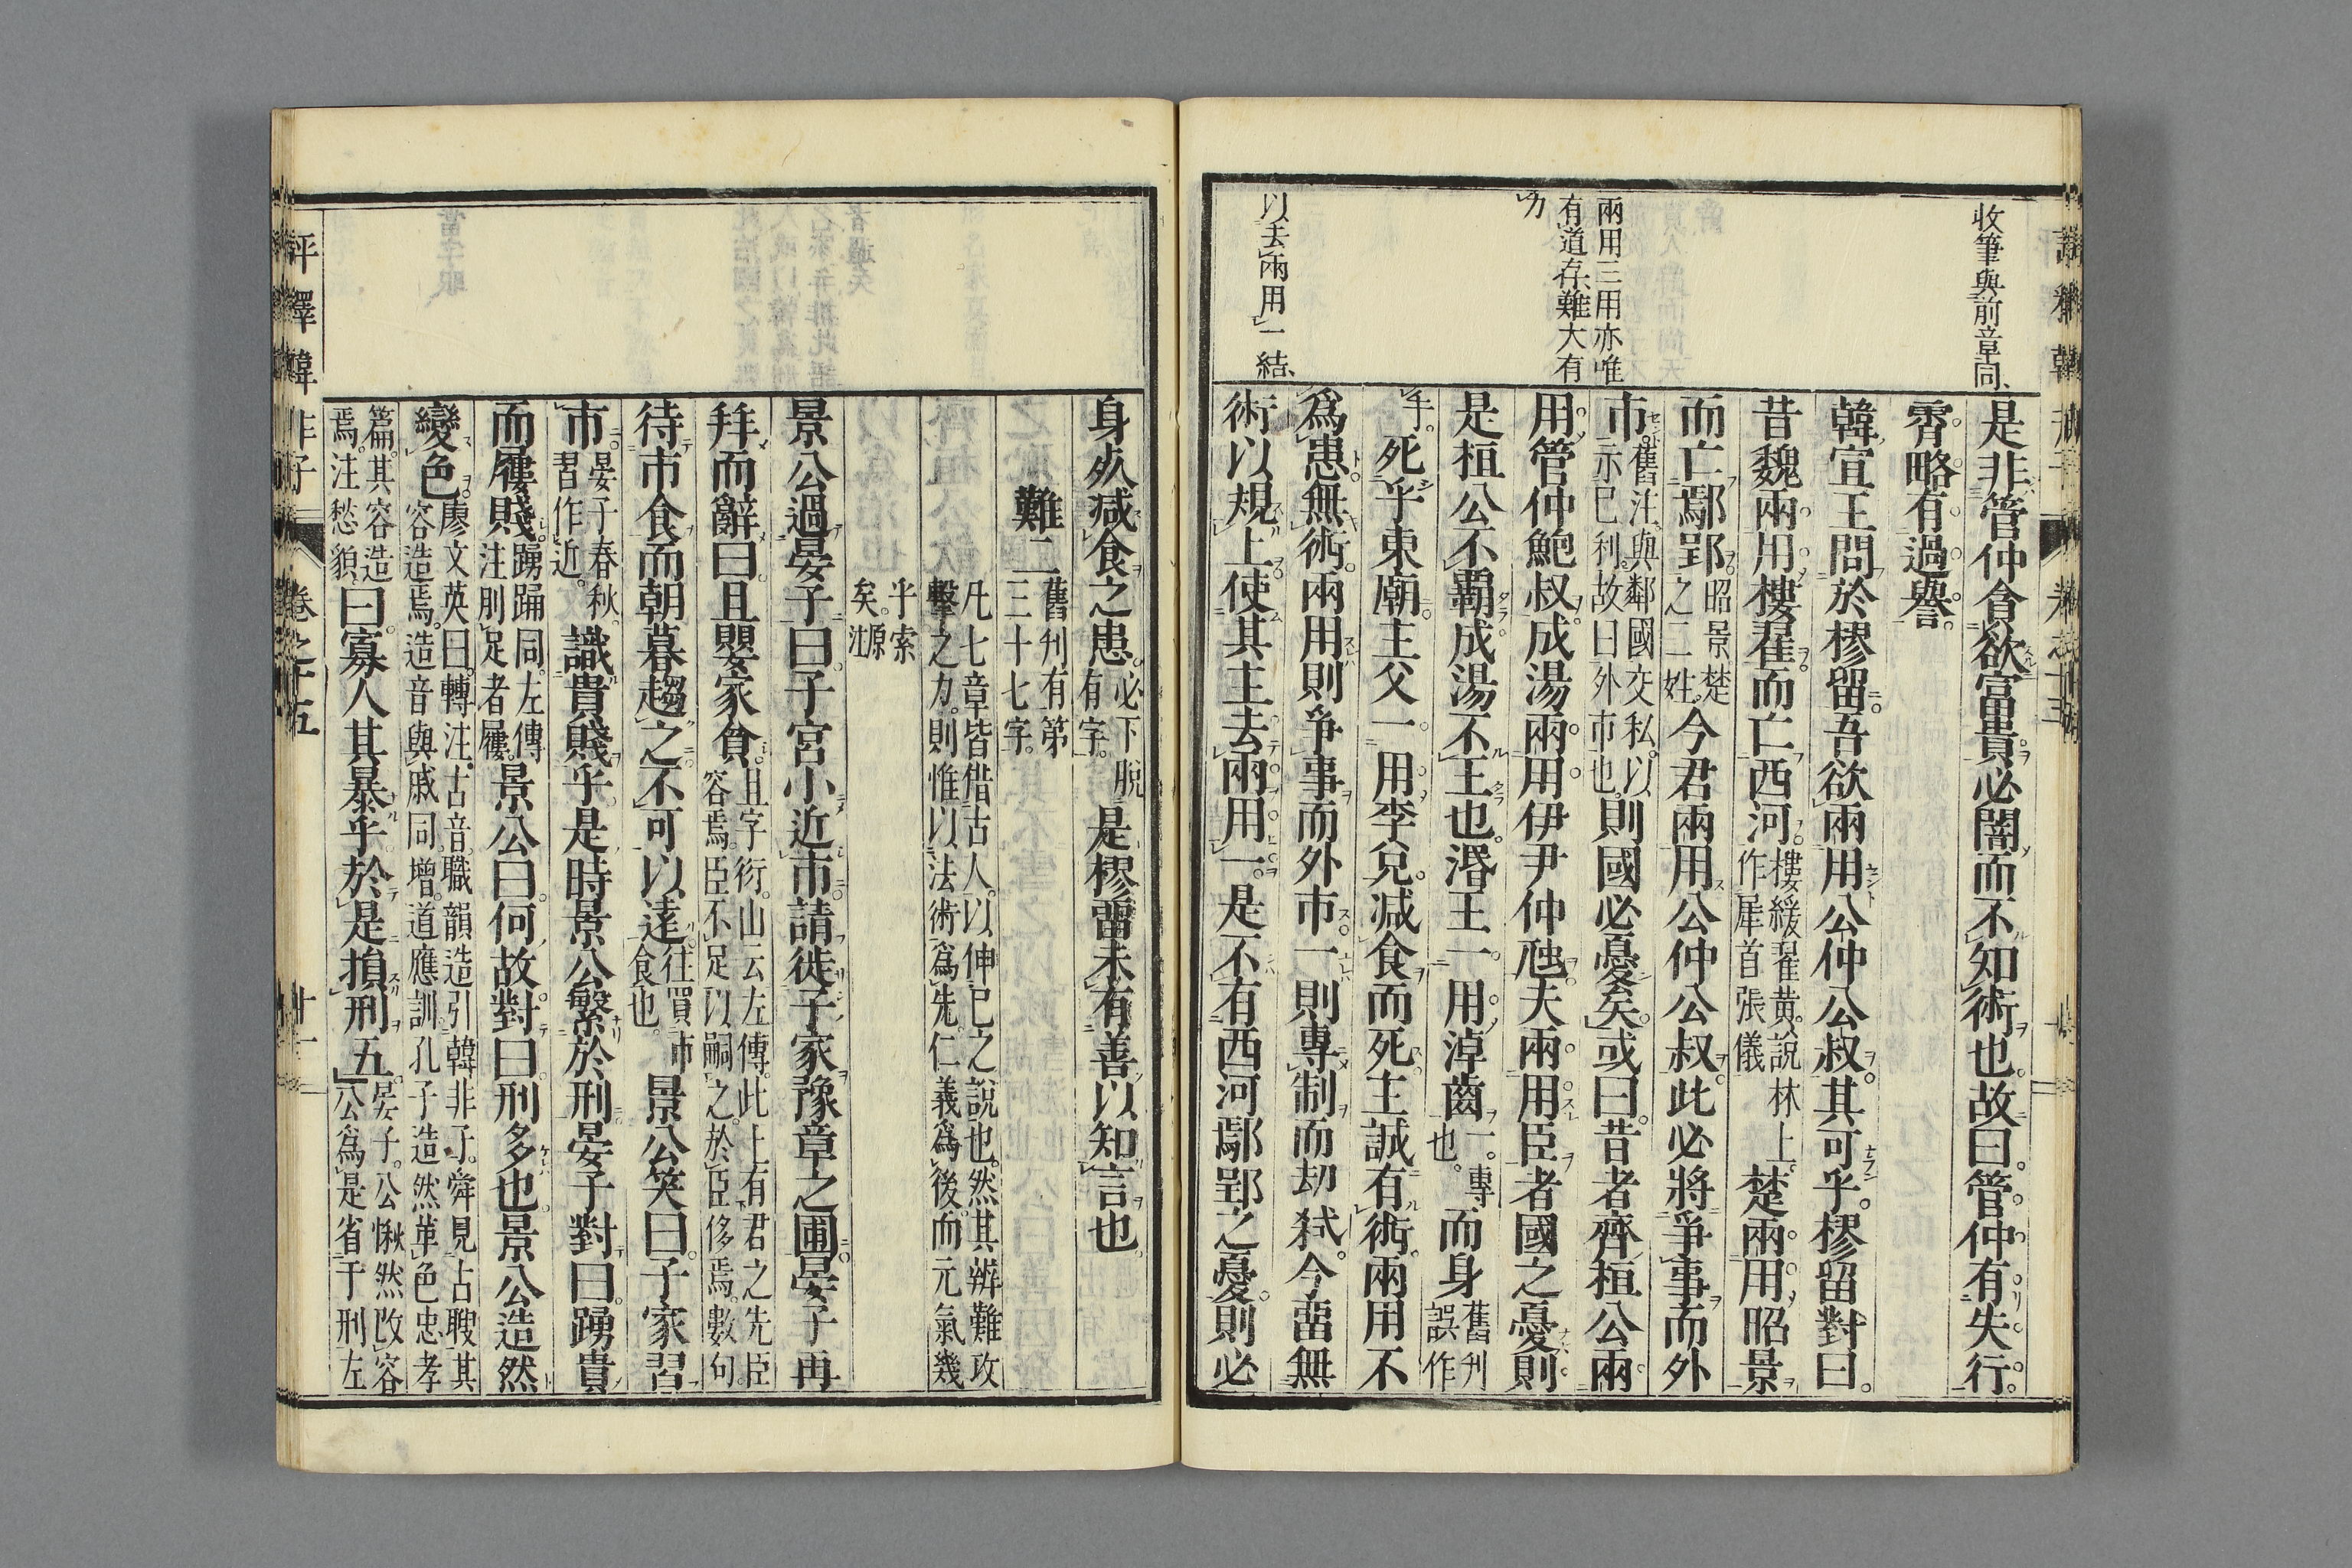 收筆與前章同
兩用三用亦唯
有道存難大有
力
以去兩用一結
是非管仲貪欲富貴必闇而不知術也故曰管仲有失行
霄略有過譽
韓宣王問於樛留吾欲兩用公仲公叔其可乎樛留對曰
昔魏兩用樓翟而亡西河樓緩翟黃說林上作犀首張儀楚兩用昭景
而亡鄢郢昭景楚之二姓今君兩用公仲公叔此必將爭事而外
市舊注與鄰國交私以示己利故曰外市也則國必憂矣或曰昔者齊桓公兩
用管仲鮑叔成湯兩用伊尹仲虺夫兩用臣者國之憂則
是桓公不霸成湯不王也湣王一用淖齒一專也而身舊刋誤作
手死乎東廟主父一用李兌減食而死主誠有術兩用不
爲患無術兩用則爭事而外市一則專制而劫弑今畱無
術以規上使其主去兩用一是不有西河鄢郢之憂則必
身死減食之患必下脫有字是樛畱未有善以知言也
難二舊刋有第三十七字
凡七章皆借古人以伸己之說也然其辨難攻
擊之力則惟以法術爲先仁義爲後而元氣幾
乎索
矣原注
景公過晏子曰子宮小近市請徙子家豫章之圃晏子再
拜而辭曰且嬰家貧且字衍山云左傳此上有君之先臣容焉臣不足以嗣之於臣侈焉數句
待市食而朝暮趨之不可以遠往買市食也景公笑曰子家習
市晏子春秋習作近識貴賤乎是時景公繁於刑晏子對曰踊貴
而屨賤踴踊同左傳注刖足者屨景公曰何故對曰刑多也景公造然
變色廖文英曰轉注古音職韻造引韓非子舜見古瞍其容造焉造音與戚同增道應訓孔子造然革色忠孝
篇其容造焉注愁貌曰寡人其暴乎於是損刑五晏子公愀然改容公爲是省于刑左
評釋韓非子
卷之十五
十一